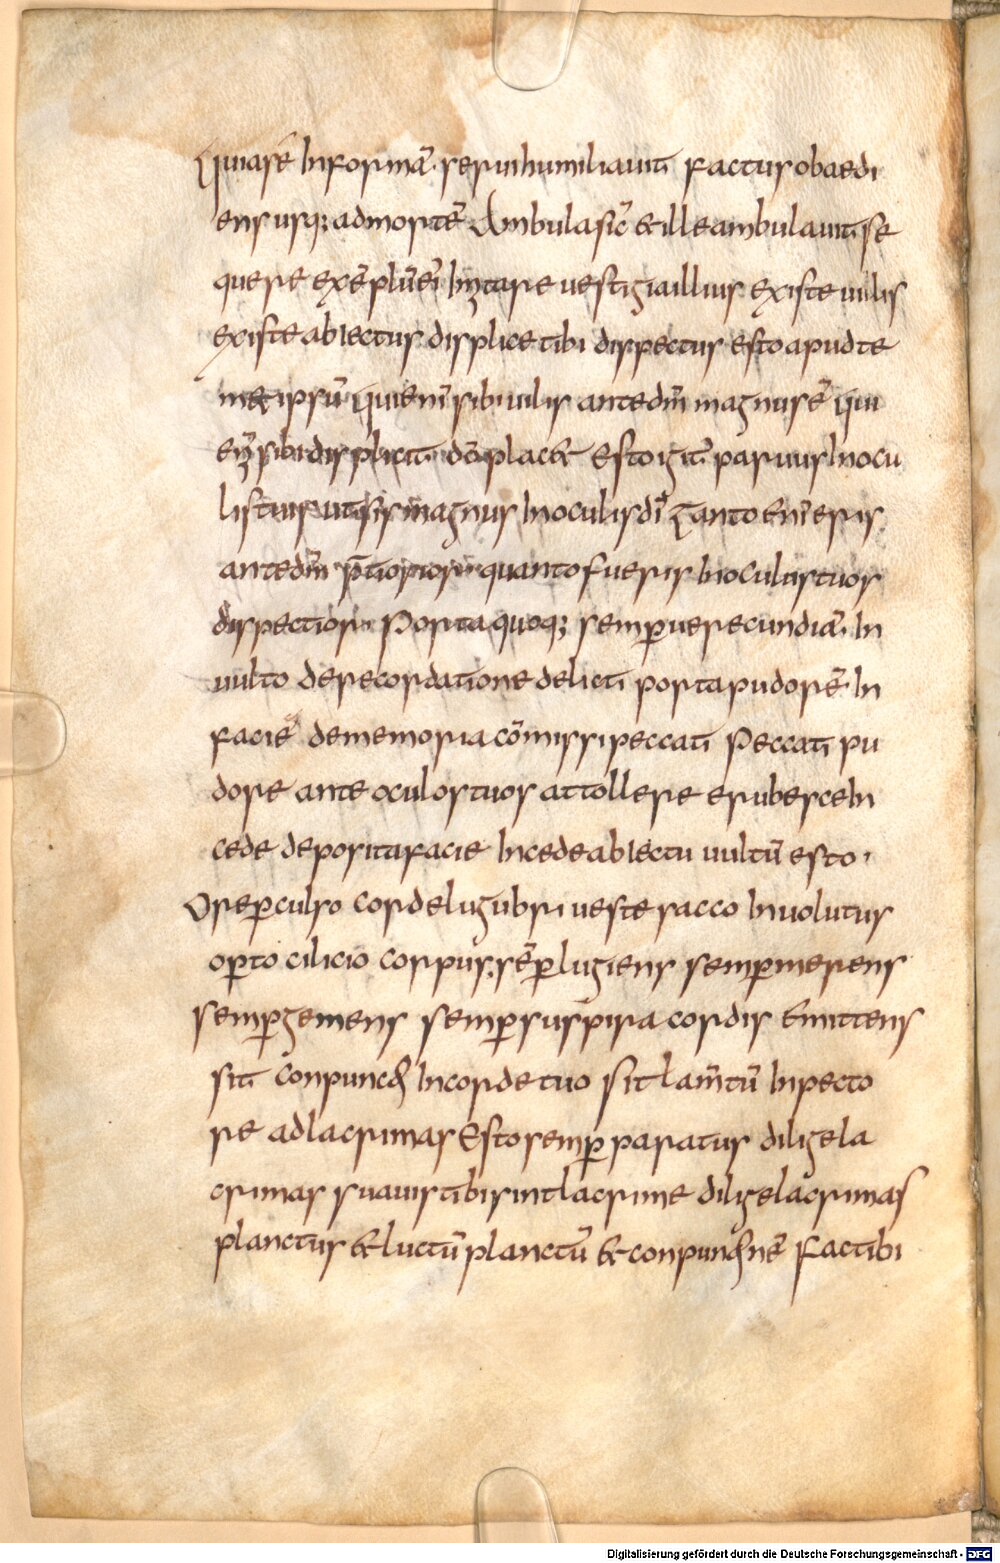 quiase Informā serui humiliauit factus obaedi
ens usq; ad mortē Ambula sic̄ & ille ambulauit se
quere exēplū ei Imitare uestigia illius existe uilis
existe abiectus displice tibi dispectus esto apud te
met ipsū qui enī sibi uilis ante dm̄ magnus ē qui
eni sibi displicit dō plac& Esto igit̄ paruus In ocu
lis tuis ut sis magnus In oculis dī Tanto enī eris
ante dm̄ p̄tiosior quanto fueris In oculis tuos
dispectior Porta quoq; semp uerecundiā In
uulto de recordatione delicti porta pudorē In
faciē de memoria cōmissi peccati Peccati pu
dore ante oculos tuos attollere erubesce In
cede deposita facie Incede abiectu uultū esto
Ore perculso corde lugubri ueste sacco Inuolutus
opto cilicio corpus: sēp lugiens semp merens
semp gemens semp suspiria cordis Emittens
sit conpunctio In corde tuo sit lam̄tū In pecto
re ad lacrimas Esto semp paratus dilige la
crimas suauis tibi sint lacrime dilige lacrimas
planctus & luctū planctū & conpunctionē fac tibi
Digitalisierung gefördert durch die Deutsche Forschungsgemeinschaft - DFG